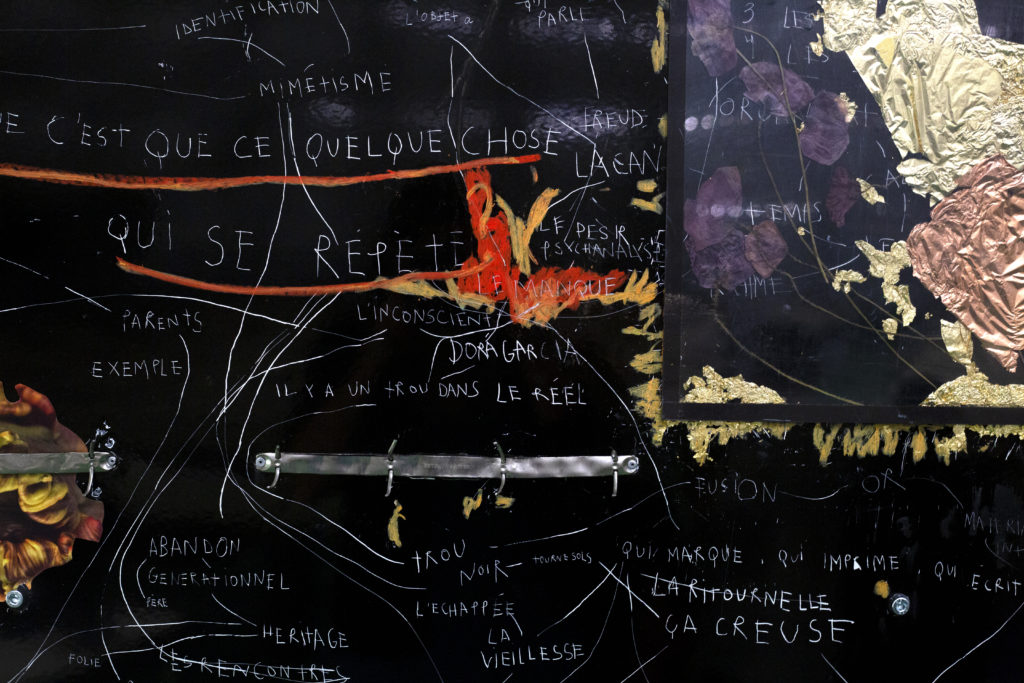 IDENTIFICATION
L'OBJET a
PARLE
3 LES
4 LES
MIMÉTISME
C'EST QUE CE QUELQUE CHOSE
FREUD
LACAN
QUI SE RÉPÈTE
LE DÉSIR
PSYCHANALYSE
TEMPS
LE MANQUE
L'INCONSCIENT
PARENTS
DORA GARCIA
EXEMPLE
IL Y A UN TROU DANS LE RÉEL
FUSION
OR
ABANDON
GÉNÉRATIONNEL
PÈRE
TROU
NOIR
TOURNESOLS
QUI MARQUE, QUI IMPRIME, QUI ÉCRIT
LA RITOURNELLE
L'ECHAPPÉE
ÇA CREUSE
HERITAGE
LA
VIEILLESSE
FOLIE
LES RENCONTRES